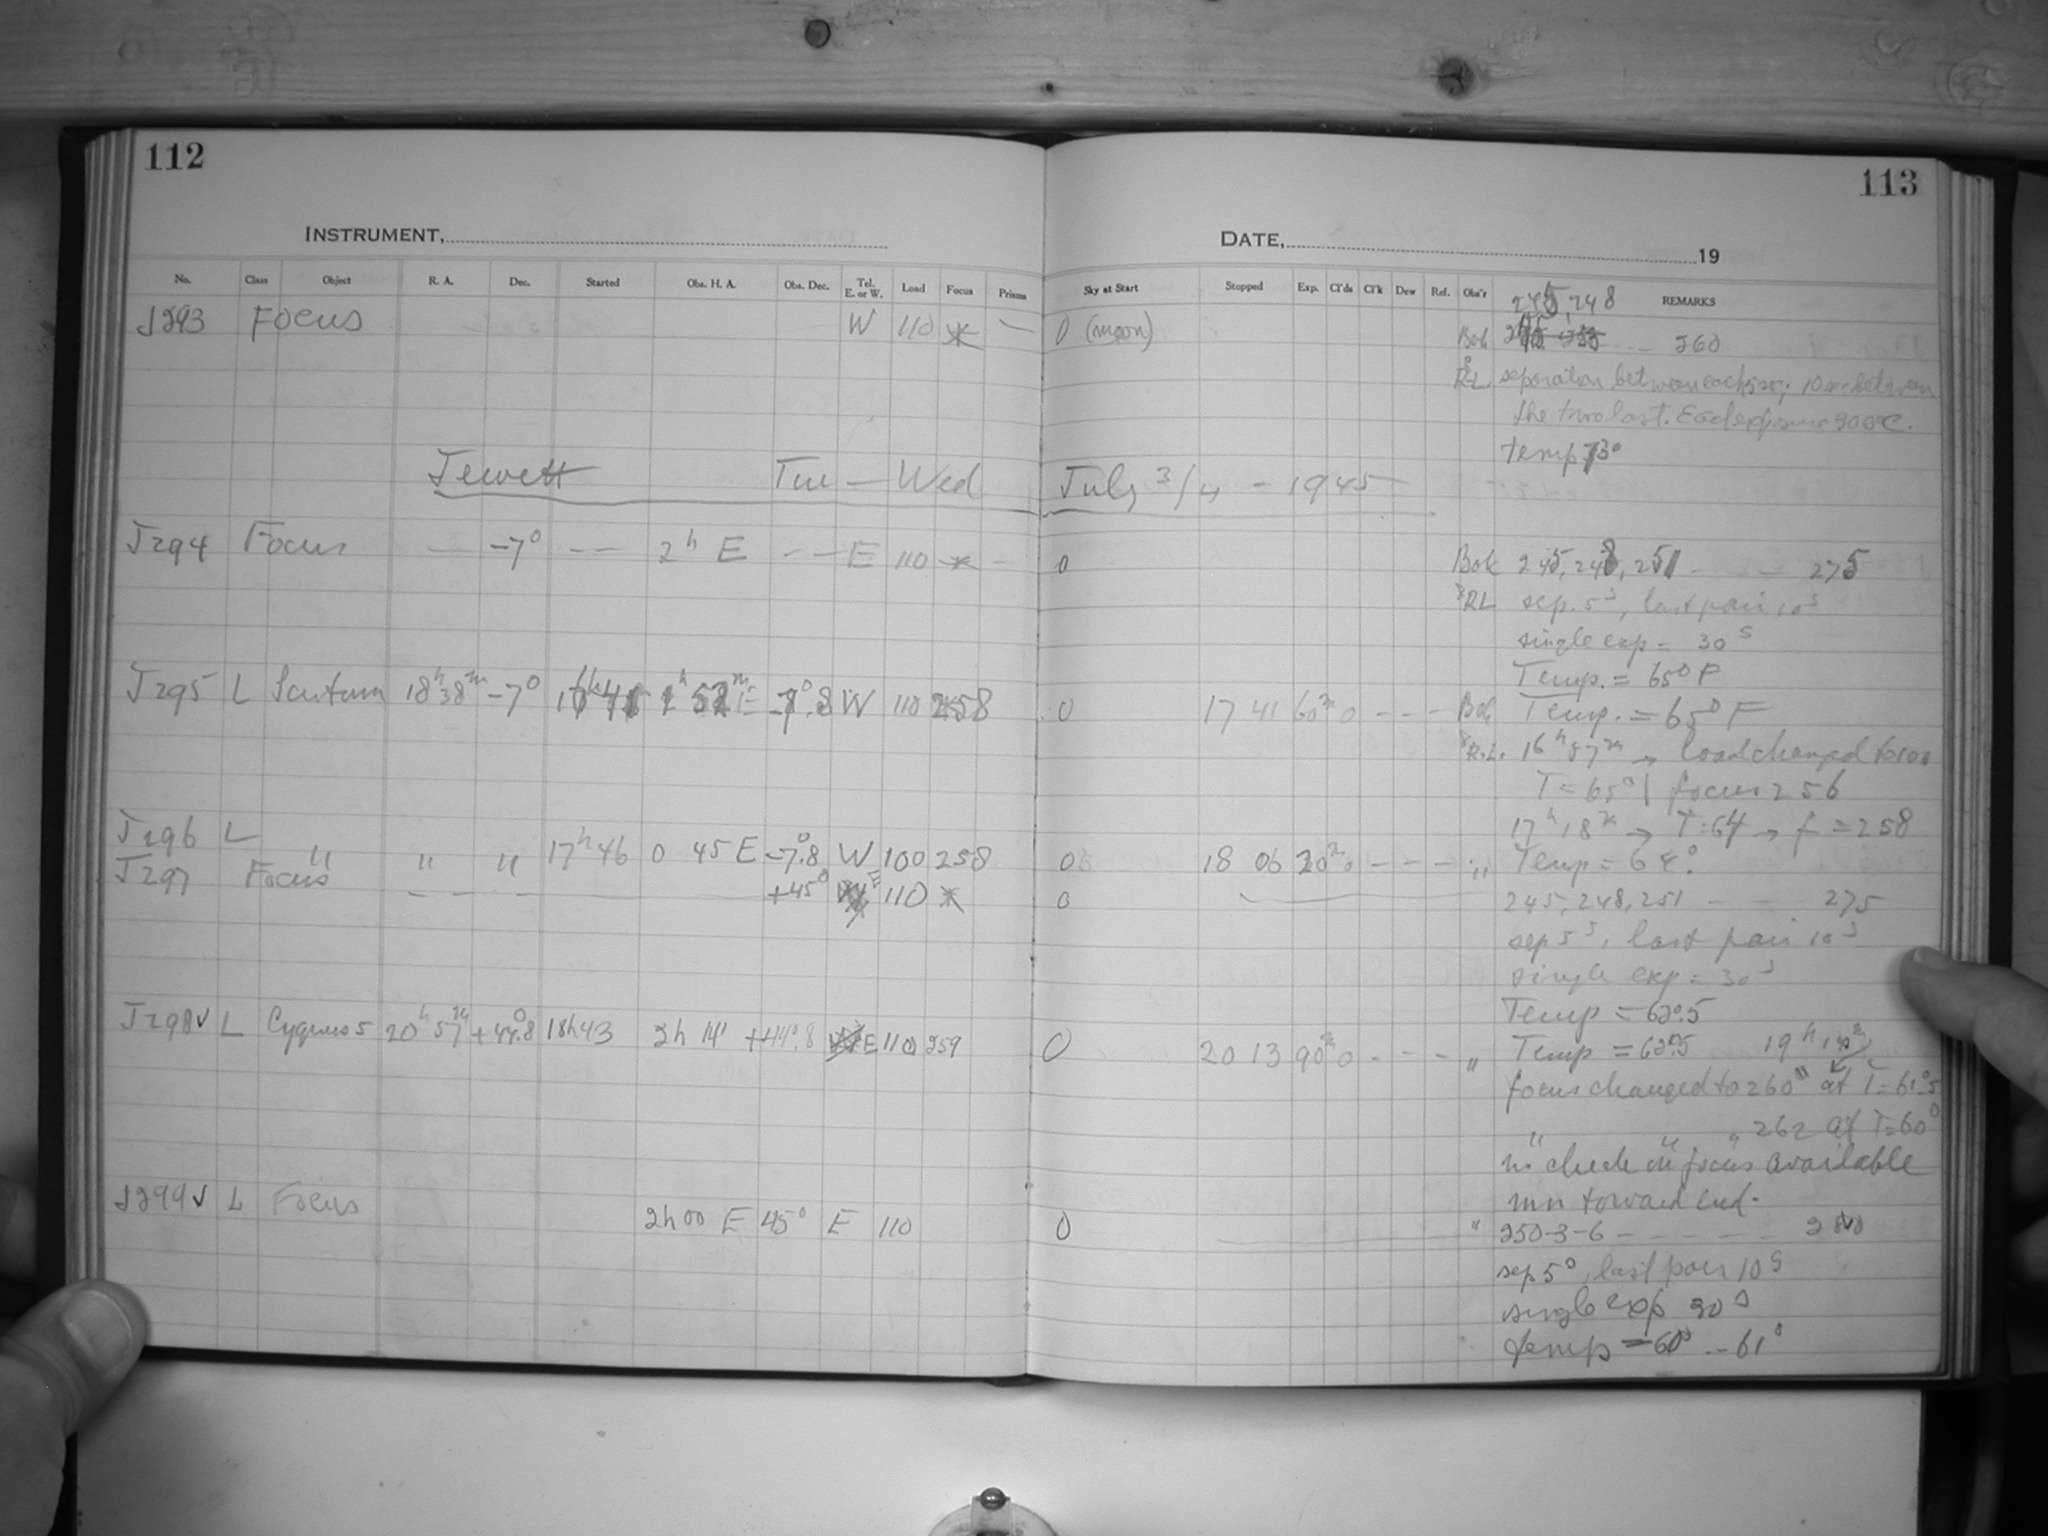 112
113
INSTRUMENT,
DATE, 19
No. Class Object R. A. Dec. Started Obs. H. A. Obs. Dec. Tel. E. or W. Load Focus Prisms Sky at Start Stopped Exp. Cl'ds Cl'k Dew Ref. Obs'r REMARKS
245, 248
J293 Focus W 110 * — 0 (moon) Bok 260
& RL separation between each 5 sec; 10 sec between
the two last. Each exposure 30 sec.
temp 73°
Jewett Tue — Wed July 3/4 - 1945
J294 Focus — -7° —— 2h E —— E 110 * — 0 Bok 245, 248, 251 — — 275
& RL sep. 5s, last pair 10s
single exp = 30s
Temp. = 65° F
J295 L Scutum 18h38m -7° 1h 52m E -7°.8 W 110 258 0 17 41 60m 0 - - - Bok Temp. = 65° F
& R.L. 16h57m → load changed to 100
T = 65° | focus 256
17h18m → T=64 → f = 258
J296 L " " " 17h46 0 45 E -7°.8 W 100 258 0 18 06 20m 0 - - - " Temp = 64°
J297 Focus — — +45° E 110 * 0 245, 248, 251 — — 275
sep 5s, last pair 10s
single exp = 30s
Temp = 62°.5
J298√ L Cygnus 5 20h57m +44°.8 18h43 2h 14 +44°.8 E 110 259 0 20 13 90m 0 - - - " Temp = 62°.5 19h
focus changed to 260 at T=61°.5
" " " 262 at T=60°
no check on focus available
run toward end.
J299√ L Focus 2h00 E 45° E 110 0 " 250-3-6 - - - - - 280
sep 5°, last pair 10s
single exp 30s
temp = 60° -- 61°